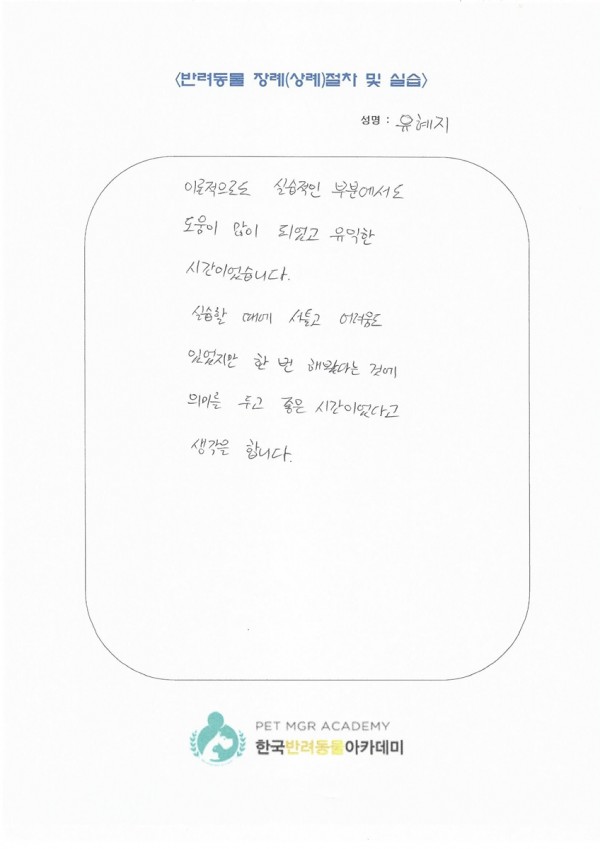 <반려동물 장례(상례)절차 및 실습>
성명 : 유혜지
이론적으로도 실습적인 부분에서도
도움이 많이 되었고 유익한
시간이었습니다.
실습할 때에 서툴고 어려움도
있었지만 한 번 해봤다는 것에
의미를 두고 좋은 시간이었다고
생각을 합니다.
PET MGR ACADEMY
한국반려동물아카데미